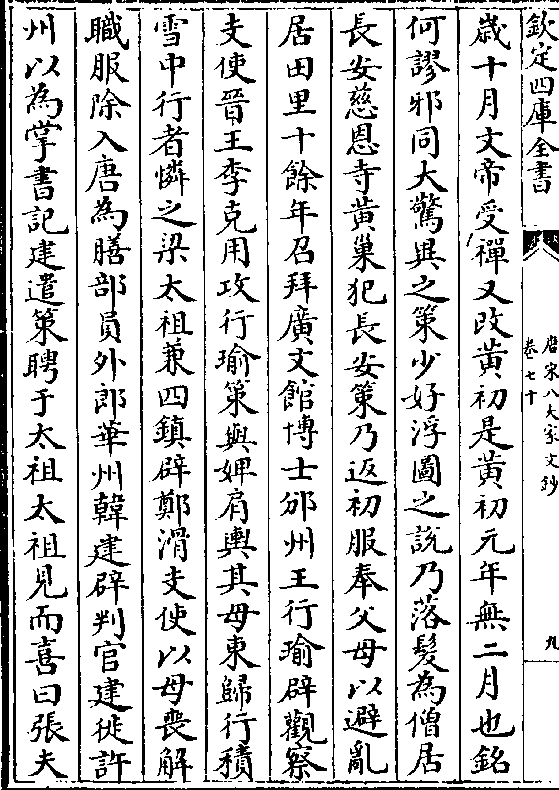 欽定四庫全書
唐宋八大家文鈔
卷七十
九
歳十月文帝受禪又改黄初是黄初元年無二月也銘
何謬邪同大驚異之策少好浮圖之說乃落髮為僧居
長安慈恩寺黄巢犯長安策乃返初服奉父母以避亂
居田里十餘年召拜廣文館博士邠州王行瑜辟觀察
支使晉王李克用攻行瑜策與婢肩輿其母東歸行積
雪中行者憐之梁太祖兼四鎮辟鄭滑支使以母喪解
職服除入唐為膳部員外郎華州韓建辟判官建徙許
州以為掌書記建遣策聘于太祖太祖見而喜曰張夫